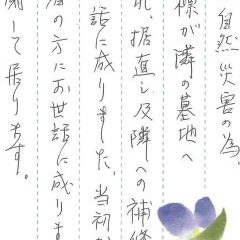 自然災害の為、
様が隣の墓地へ
れ、据直し及隣への補修
話に成りました、当初か
者の方にお世話に成りま
謝して居ります。